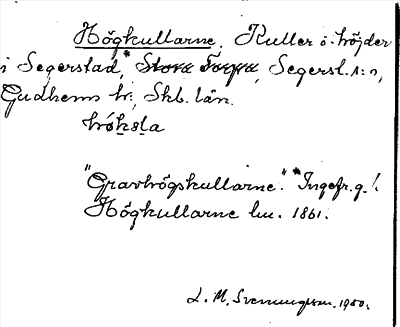 Högkullarne. Kullar o. höjder
i Segerstad, Stora Torpa, Segerst. s:n,
Gudhems hd, Skb. län.
"Gravhögskullarne". Ingefr. g.!
Högkullarne lm. 1861.
L. M. Svenungsson. 1930.